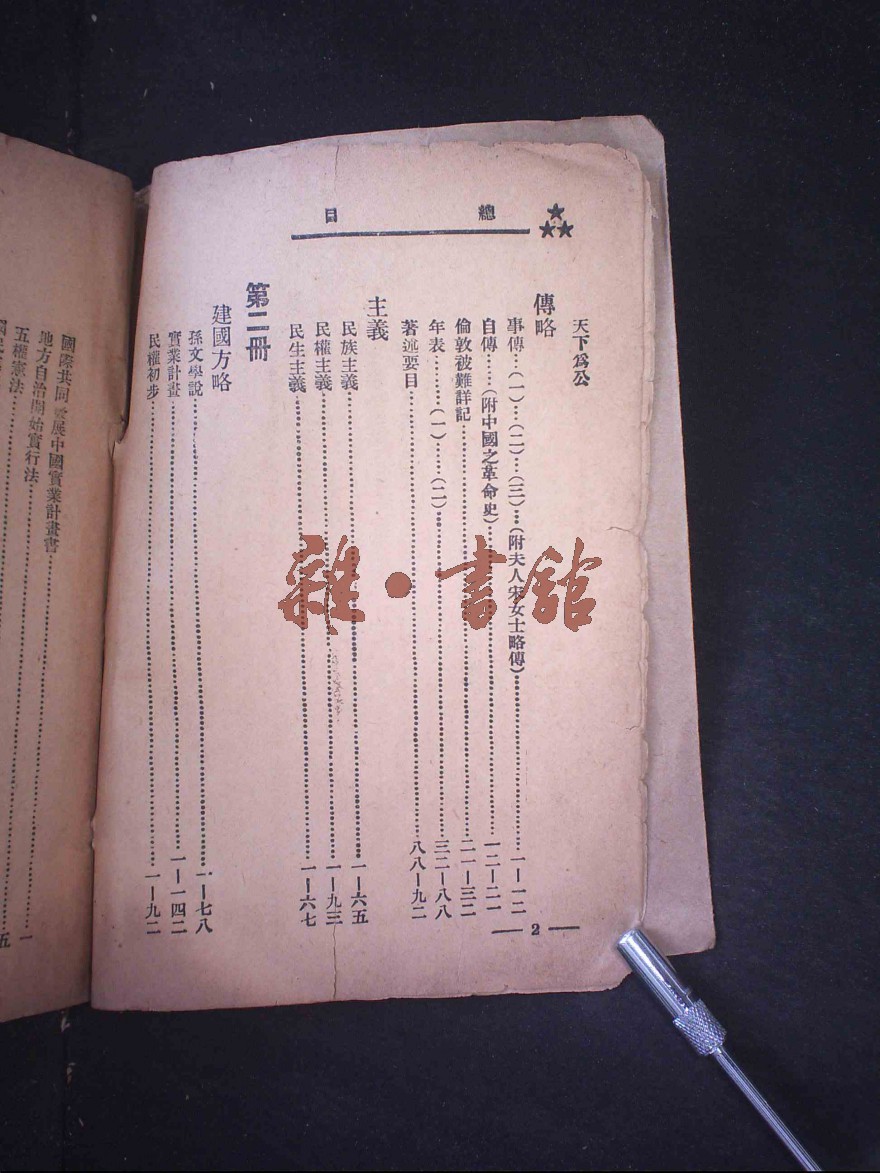 總目
天下爲公
傳略
事傳…(一)…(二)…(三)…(附夫人宋女士略傳)…一—一二
自傳……(附中國之革命史)…一二—二一
倫敦被難詳記…二一—三二
年表………(一)……(二)…三二—八八
著述要目…八八—九二
主義
民族主義…一—六五
民權主義…一—九三
民生主義…一—六七
第二冊
建國方略
孫文學說…一—七八
實業計畫…一—一四二
民權初步…一—九二
— 2 —
國際共同發展中國實業計畫書
地方自治開始實行法…一
五權憲法…五
雜·書館